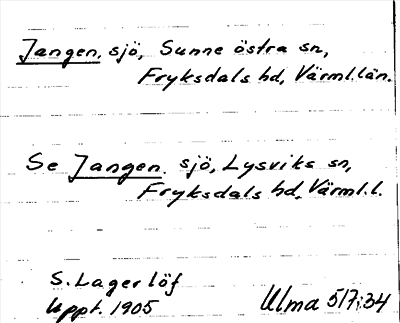 Jangen. sjö, Sunne östra sn,
Fryksdals hd, Värml.län.
Se Jangen. sjö, Lysviks sn,
Fryksdals hd, Värml.l.
S. Lagerlöf
Uppt. 1905
Ulma 517:34